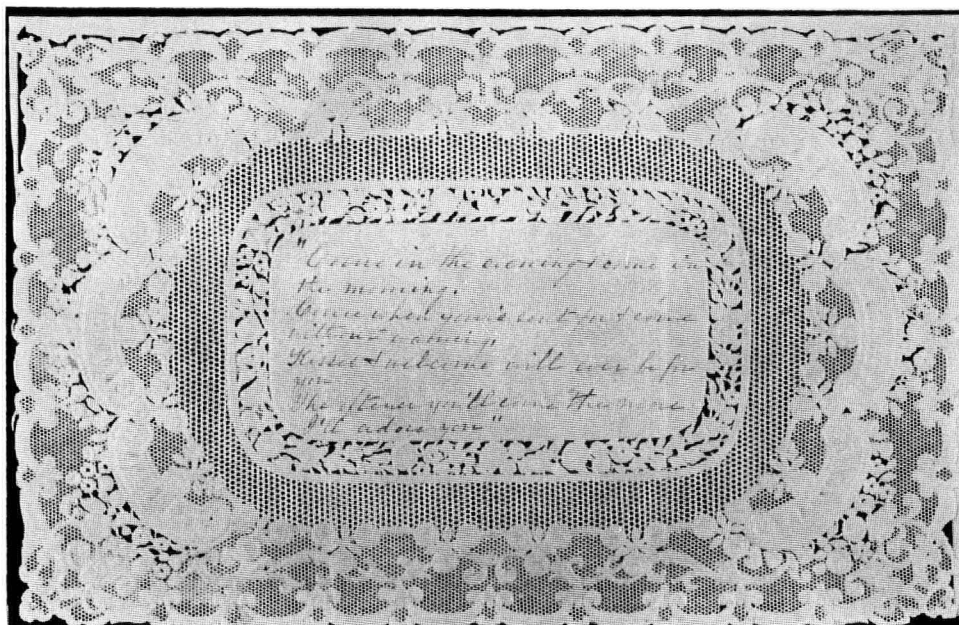 "Come in the evening & come in
the morning.
Come when you're sent for & come
without warning,
Kisses & welcome will ever be for
you
The oftener you'll come the more
I'll adore you"